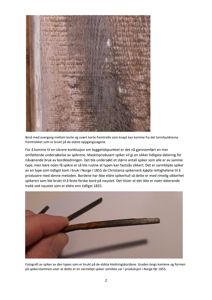 Bord med overgang mellom lyste og svært korte fremtrukne som knapt kan komme fra det tannhjuldrevne
fremtrekket som er brukt på de eldre oppgangssagene.
For å komme til en sikrere konklusjon om byggetidspunktet er det nå gjennomført en mer
omfattende undersøkelse av spikrene. Maskinprodusert spiker vil gi en sikker tidligste datering for
nåværende bruk av bordkledningen. Det ble undersøkt et større antall spiker som alle er av samme
type, men bare noen få spikre er så lite rustne at typen kan fastslås sikkert. Det er samtlige klipt spiker
av en type som tidligst kom i bruk i Norge i 1855 da Christiania spikerverk kjøpte rettighetene til å
produsere med denne metoden. Bordene har ikke eldre spikerhull så dette er med rimelig sikkerhet
spikeren som ble brukt til å feste første bord på naustet. Det tilsier at det ikke er noen eldre
trekk ved naustet som er eldre enn tidligst 1855.
Fotografi av spiker av den typen som er brukt på de eldste kledningsbordene. Graden langs kantene og formen
på spikerstammen viser at dette er en varmklipt spiker som ikke var i produksjon i Norge før 1855.
2